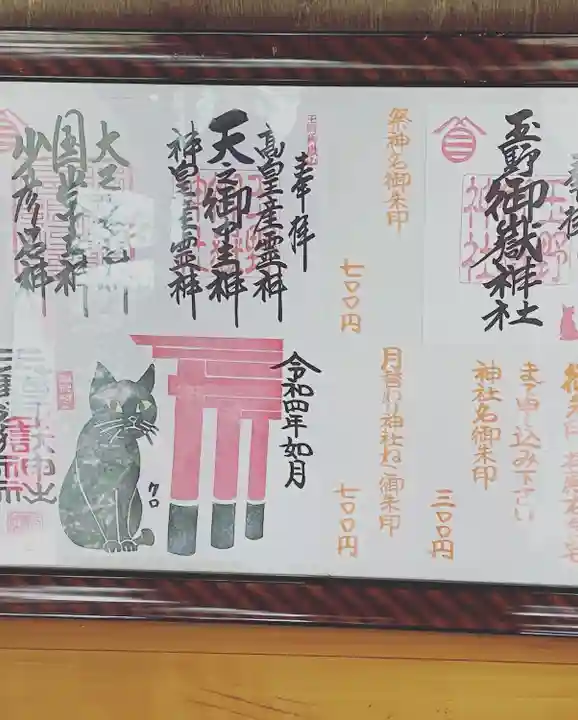 奉拝
玉野御嶽神社
祭神名御朱印
七〇〇円
奉拝
高皇産霊神
天之御中主神
神皇産霊神
国常立神
少彦名神
まで申し込み下さい
神社名御朱印
三〇〇円
月替わり神社ねこ御朱印
七〇〇円
令和四年如月
クロ